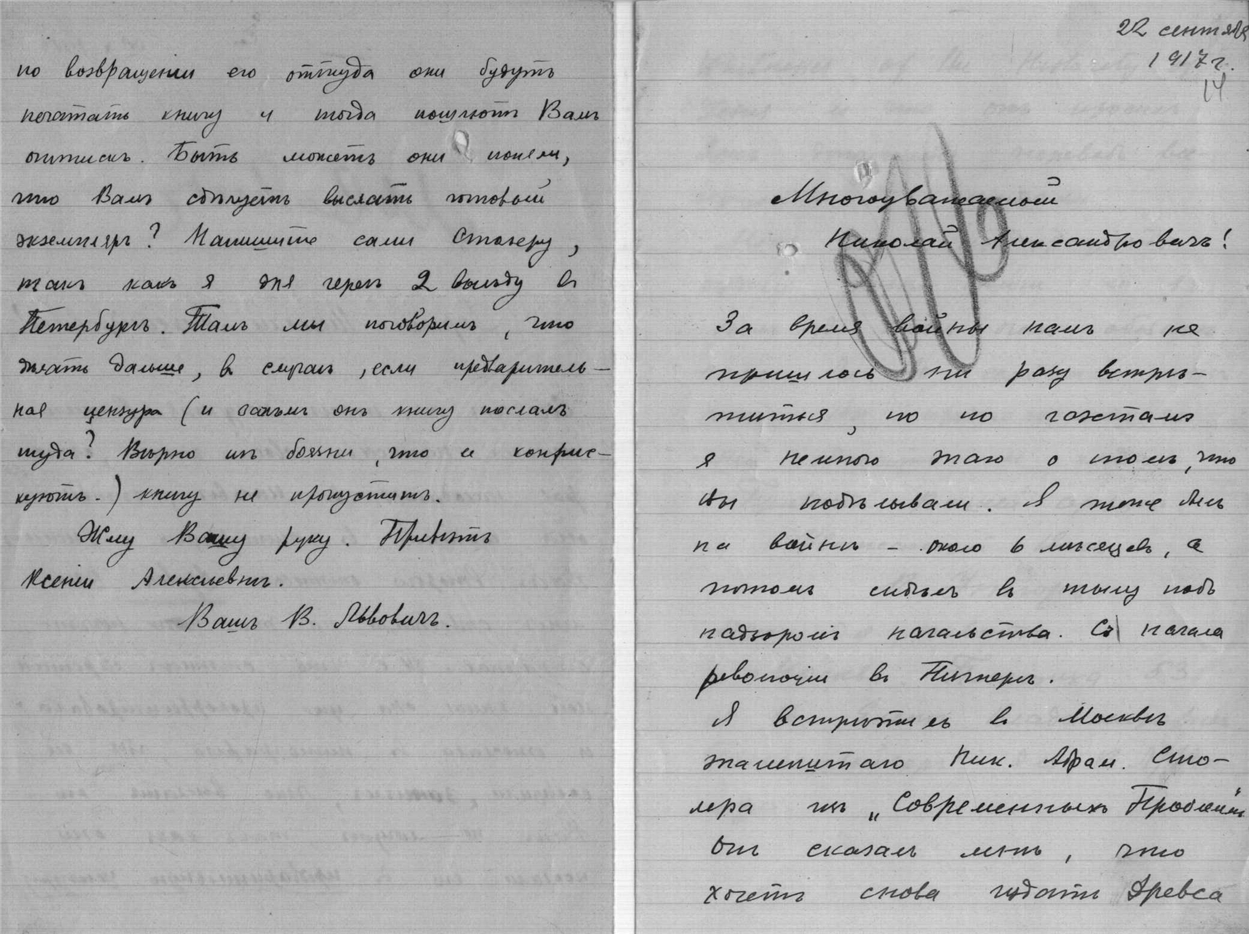 по возвращеніи его оттуда они будутъ
печатать книгу и тогда пошлютъ Вамъ
оттискъ. Быть можетъ они поняли,
что Вамъ слѣдуетъ выслать готовый
экземпляръ? Напишите сами Столеру,
такъ какъ я дня черезъ 2 выѣду въ
Петербургъ. Тамъ мы поговоримъ, что
дѣлать дальше, въ случаѣ, если предваритель-
ная цензура (и зачѣмъ онъ книгу послалъ
туда? Вѣрно изъ боязни, что ее конфис-
куютъ.) книгу не пропуститъ.
Жму Вашу руку. Привѣтъ
Ксеніи Алексѣевнѣ.
Вашъ В. Львовичъ.
22 сентября
1917 г.
14
Многоуважаемый
Николай Александровичъ!
За время войны намъ не
пришлось ни разу встрѣ-
титься, но по газетамъ
я немного знаю о томъ, что
Вы подѣлывали. Я тоже былъ
на войнѣ – около 6 мѣсяцевъ, а
потомъ сидѣлъ въ тылу подъ
надзоромъ начальства. Съ начала
революціи въ Питерѣ.
Я встрѣтилъ въ Москвѣ
знаменитаго Ник. Абрам. Сто-
лера изъ „Современныхъ Проблемъ"
Онъ сказалъ мнѣ, что
хочетъ снова издать Древса